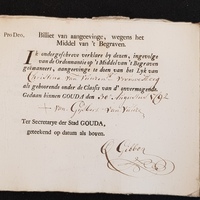 Pro Deo.
Billiet van aangeevinge, wegens het
Middel van 't Begraven.
Ik ondergeschreve verklare by deezen, ingevolge
van de Ordonnantie op 't Middel van 't Begraven
geëmaneert, aangeevinge te doen van het Lyk van
Christina van
als gehoorende onder de Classis van d' onvermogende.
Gedaan binnen GOUDA den 30 1792
Ter Secretarye der Stad GOUDA,
geteekend op datum als boven.